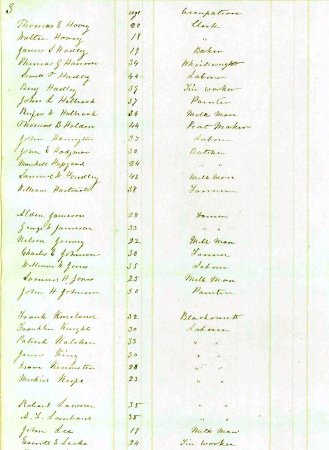 3 age Occupation
Thomas E Hovey 20 Clerk
Walter Hovey 18
James S Hadley 19 Baker
Thomas G 34 Wheelwright
Hadley 44 Labor
Benj Hadley 39 Tin worker
John L Holbrook 37 Painter
Rufus Holbrook 36 Milk Man
Thomas B Holden 44 Boot Maker
John 33 Labour
30 Butcher
24 " "
Samuel H Hendley 42 Milk Man
William 38 Farmer
Alden Jameson 28
George Jameson 33 " "
Nelson Jenney 22 Milk Man
Charles E Johnson 30 Farmer
William H Jones 35 Labor
Samuel H Jones 25 Milk Man
John H Johnson 30 Painter
Frank Kneeland 32 Blacksmith
Franklin Knights 30 Laborer
Patrick 33 " "
James King 30 " "
Isaac 28 " "
Keefe 23 " "
Robert Lawson 35 " "
A. F. Lombard 35 " "
John Lee 19 Milk Man
E Locke 24 Tin worker